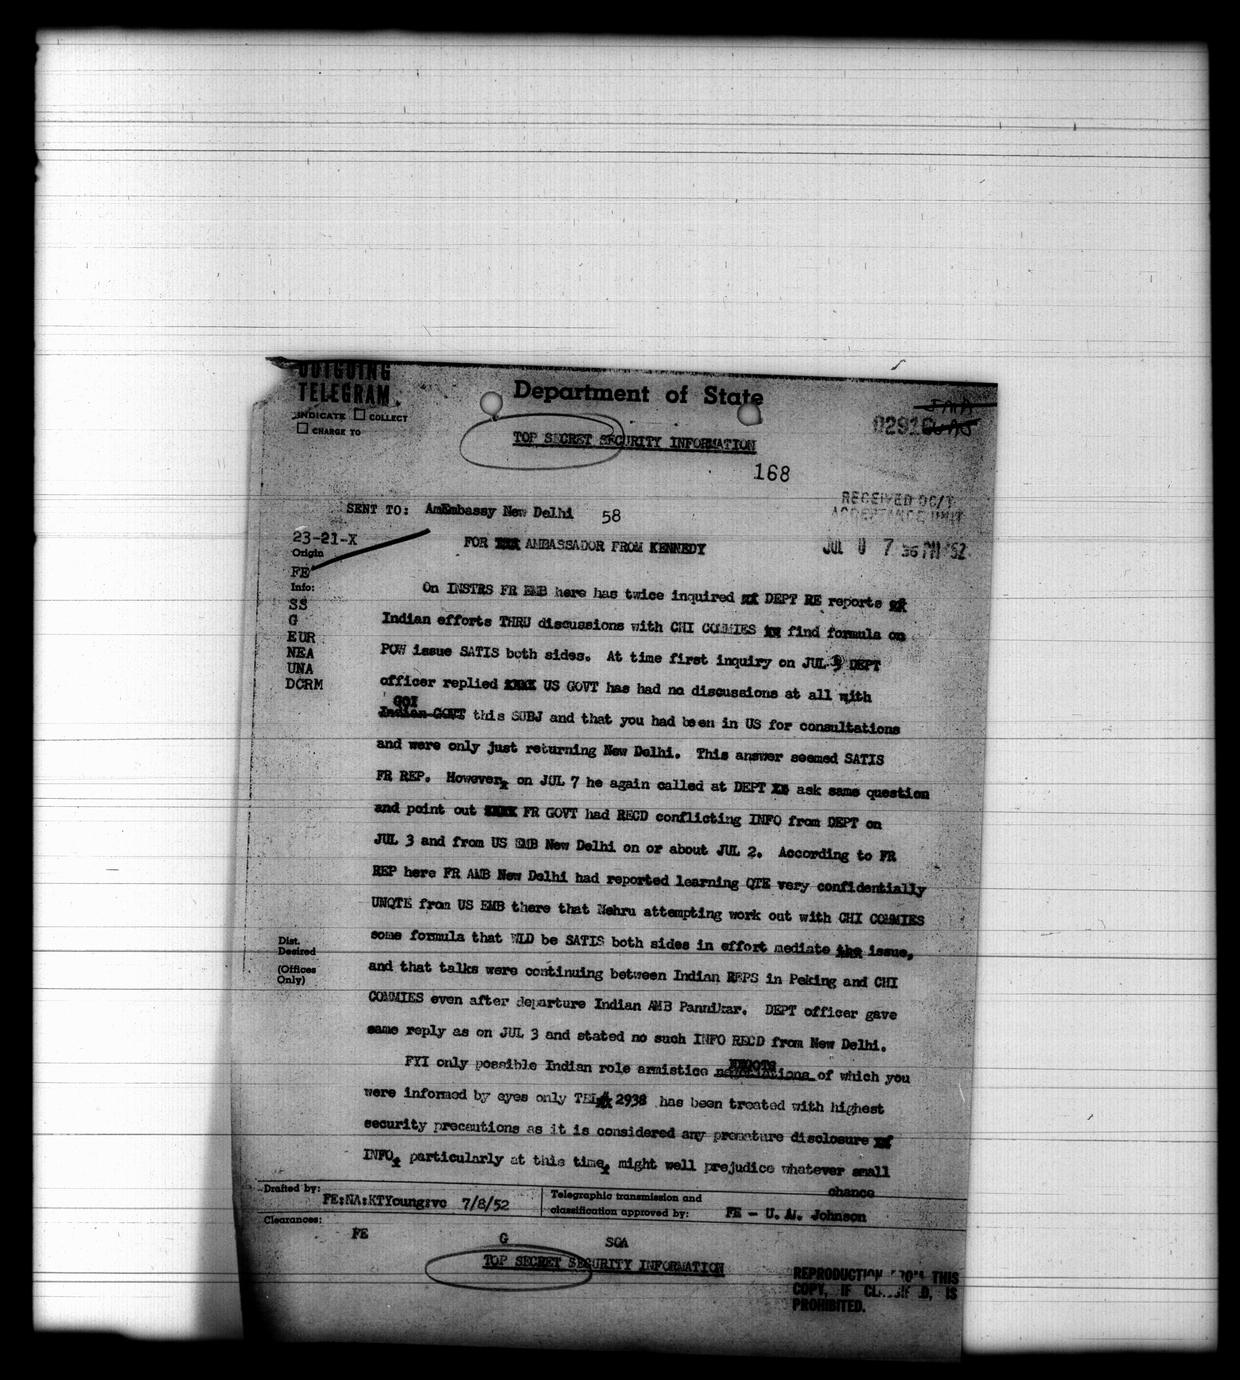 OUTGOING
TELEGRAM
INDICATE ☐ COLLECT
☐ CHARGE TO
Department of State
TOP SECRET SECURITY INFORMATION
168
RECEIVED DC/T
ACCEPTANCE UNIT
JUL 7 36 PM '52
SENT TO: AmEmbassy New Delhi 58
FOR AMBASSADOR FROM KENNEDY
23-21-X
Origin
FE
Info:
SS
G
EUR
NEA
UNA
DCRM
On INSTRS FR EMB here has twice inquired DEPT RE reports
Indian efforts THRU discussions with CHI COMMIES find formula on
POW issue SATIS both sides. At time first inquiry on JUL 3 DEPT
officer replied US GOVT has had no discussions at all with
GOI
Indian GOVT this SUBJ and that you had been in US for consultations
and were only just returning New Delhi. This answer seemed SATIS
FR REP. However on JUL 7 he again called at DEPT ask same question
and point out FR GOVT had RECD conflicting INFO from DEPT on
JUL 3 and from US EMB New Delhi on or about JUL 2. According to FR
REP here FR AMB New Delhi had reported learning QTE very confidentially
UNQTE from US EMB there that Nehru attempting work out with CHI COMMIES
some formula that WLD be SATIS both sides in effort mediate the issue,
and that talks were continuing between Indian REPS in Peking and CHI
COMMIES even after departure Indian AMB Pannikar. DEPT officer gave
same reply as on JUL 3 and stated no such INFO RECD from New Delhi.
NEGOTS
FYI only possible Indian role armistice negotiations of which you
were informed by eyes only TEL 2938 has been treated with highest
security precautions as it is considered any premature disclosure
INFO particularly at this time might well prejudice whatever small
chance
Dist.
Desired
(Offices
Only)
Drafted by:
FE:NA:KTYoung:vc 7/8/52
Telegraphic transmission and
classification approved by: FE - U. A. Johnson
Clearances:
FE G SOA
TOP SECRET SECURITY INFORMATION
REPRODUCTION FROM THIS
COPY, IF CLASSIFIED, IS
PROHIBITED.